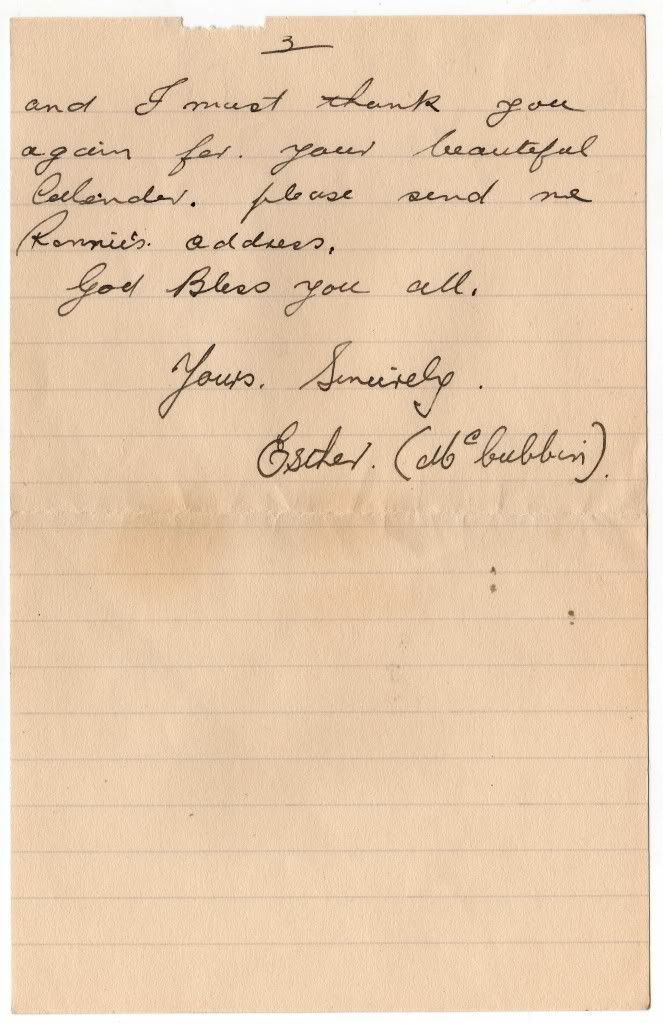 3
and I must thank you
again for. your beautiful
Calender. please send me
Ronnie's. address.
God Bless you all.
Yours. Sincirely.
Esther. (McCubbin).